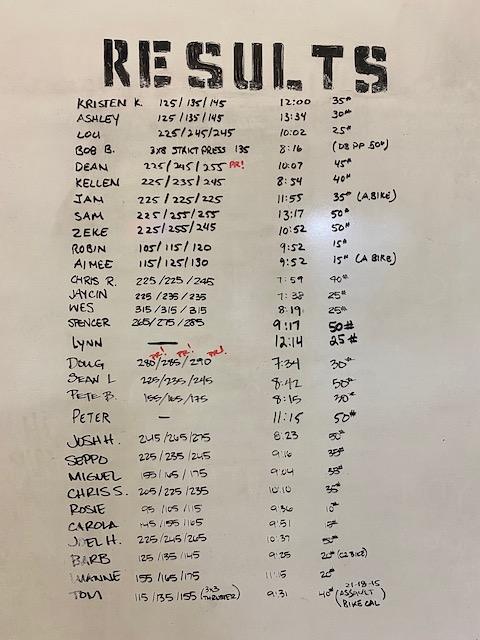 RESULTS
KRISTEN K. 125/135/145 12:00 35#
ASHLEY 125/135/145 13:34 30#
LOU 225/245/245 10:02 25#
BOB B. 3X8 STRICT PRESS 135 8:16 (DB PP 50#)
DEAN 225/245/255 PR! 10:07 45#
KELLEN 225/235/245 8:54 40#
JAM 225/225/225 11:55 35# (A.BIKE)
SAM 225/255/255 13:17 50#
ZEKE 225/255/245 10:52 50#
ROBIN 105/115/120 9:52 15#
AIMEE 115/125/130 9:52 15# (A BIKE)
CHRIS R. 225/225/245 7:59 40#
JAYCIN 225/235/235 7:38 25#
WES 315/315/315 8:19 25#
SPENCER 265/275/285 9:17 50#
LYNN — 12:14 25#
PR! PR! PR!
DOUG 280/285/290 7:34 30#
SEAN L 225/235/245 8:42 50#
PETE B. 155/165/175 8:15 30#
PETER - 11:15 50#
JOSH H. 245/265/275 8:23 50#
SEPPO 225/235/245 9:16 35#
MIGUEL 155/165/175 9:04 35#
CHRIS S. 205/225/235 10:10 35#
ROSIE 95/105/115 9:36 10#
CAROLA 145/155/165 9:51
JOEL H. 225/245/265 10:37 50#
BARB 125/135/145 9:25 20# (C2 BIKE)
155/165/175 11:15 20#
TOM 115/135/155 (3x3 THRUSTER) 9:31 40# (21-18-15 ASSAULT BIKE CAL